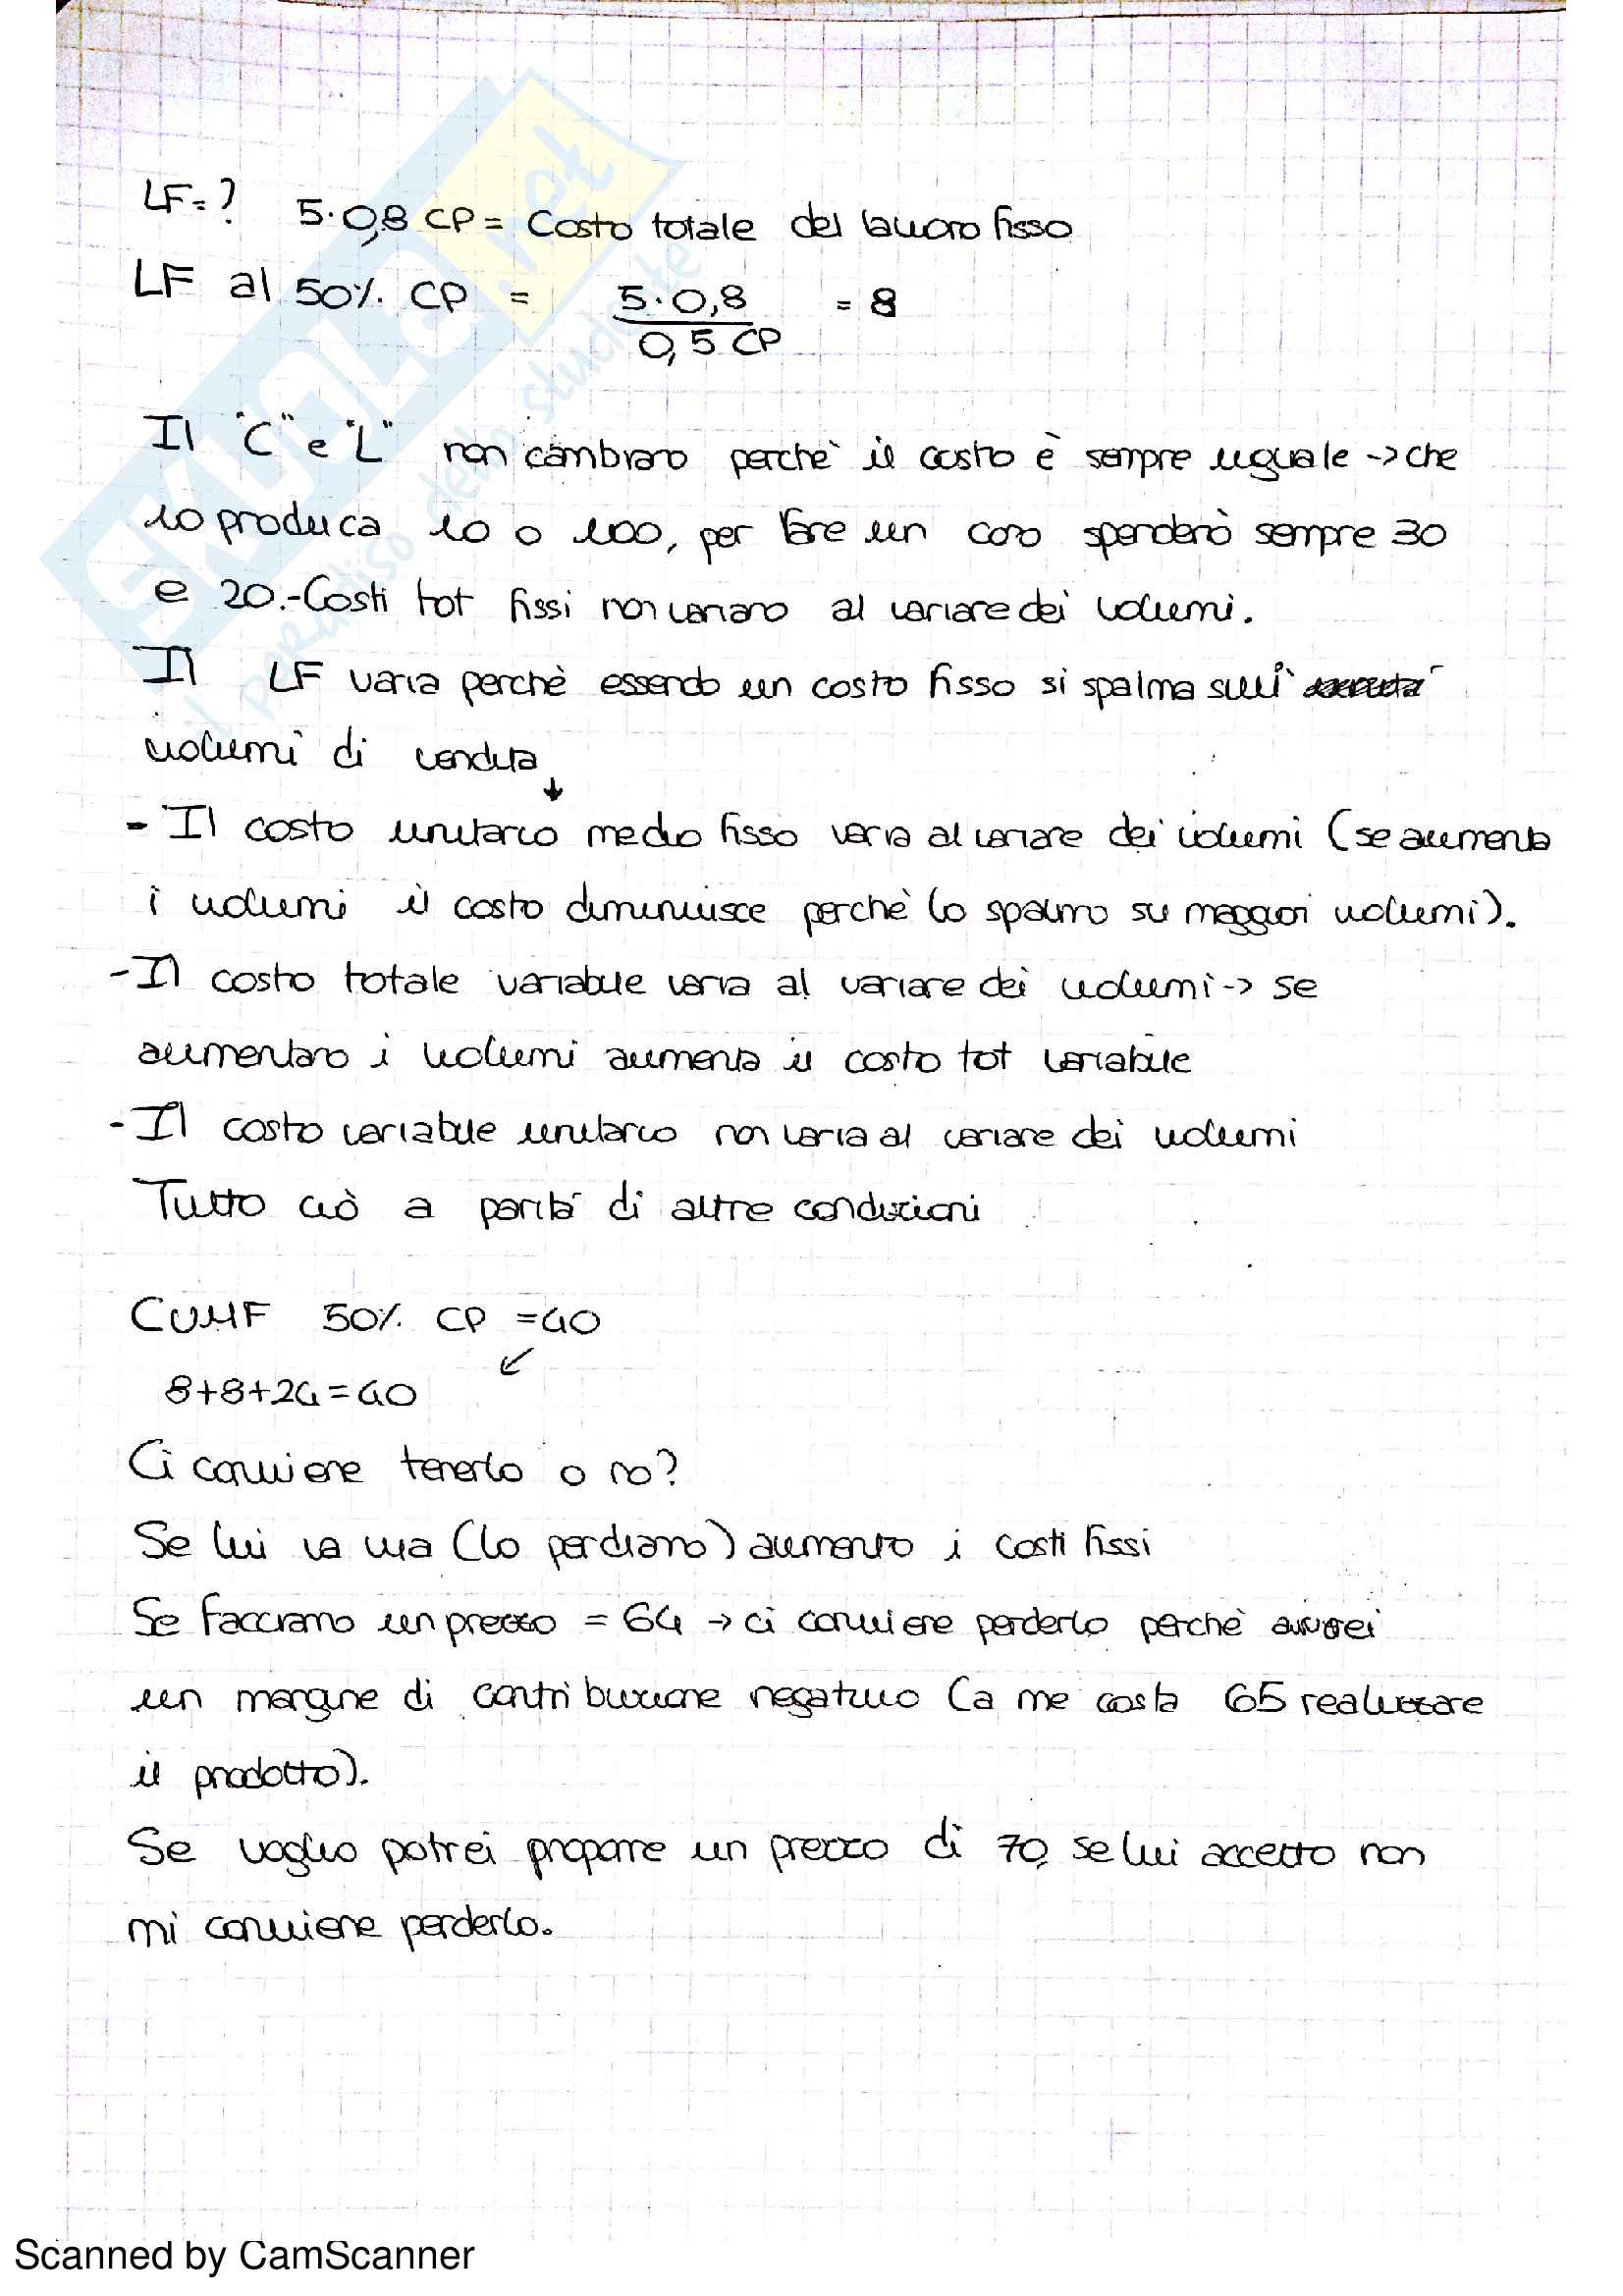 LF=? 5·0,8 CP = Costo totale del lavoro fisso
LF al 50% CP = 5·0,8 / 0,5 CP = 8
Il "C" e "L" non cambiano perchè il costo è sempre uguale -> che
io produca 10 o 100, per fare un coso spenderò sempre 30
e 20.-Costi tot fissi non variano al variare dei volumi.
Il LF varia perchè essendo un costo fisso si spalma sui
volumi di vendita
↓
- Il costo unitario medio fisso varia al variare dei volumi (se aumenta
i volumi il costo diminuisce perchè lo spalmo su maggiori volumi).
- Il costo totale variabile varia al variare dei volumi -> se
aumentano i volumi aumenta il costo tot variabile
- Il costo variabile unitario non varia al variare dei volumi
Tutto ciò a parità di altre condizioni
CUMF 50% CP = 40
↙
8+8+24=40
Ci conviene tenerlo o no?
Se lui va via (lo perdiamo) aumento i costi fissi
Se facciamo un prezzo = 64 → ci conviene perderlo perchè avrei
un margine di contribuzione negativo (a me costa 65 realizzare
il prodotto).
Se voglio potrei proporre un prezzo di 70, se lui accetto non
mi conviene perderlo.
SKUOLA.net
il paradiso dello studente
Scanned by CamScanner